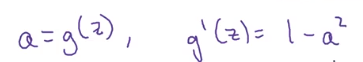 a = g(z),   g'(z) = 1 - a²